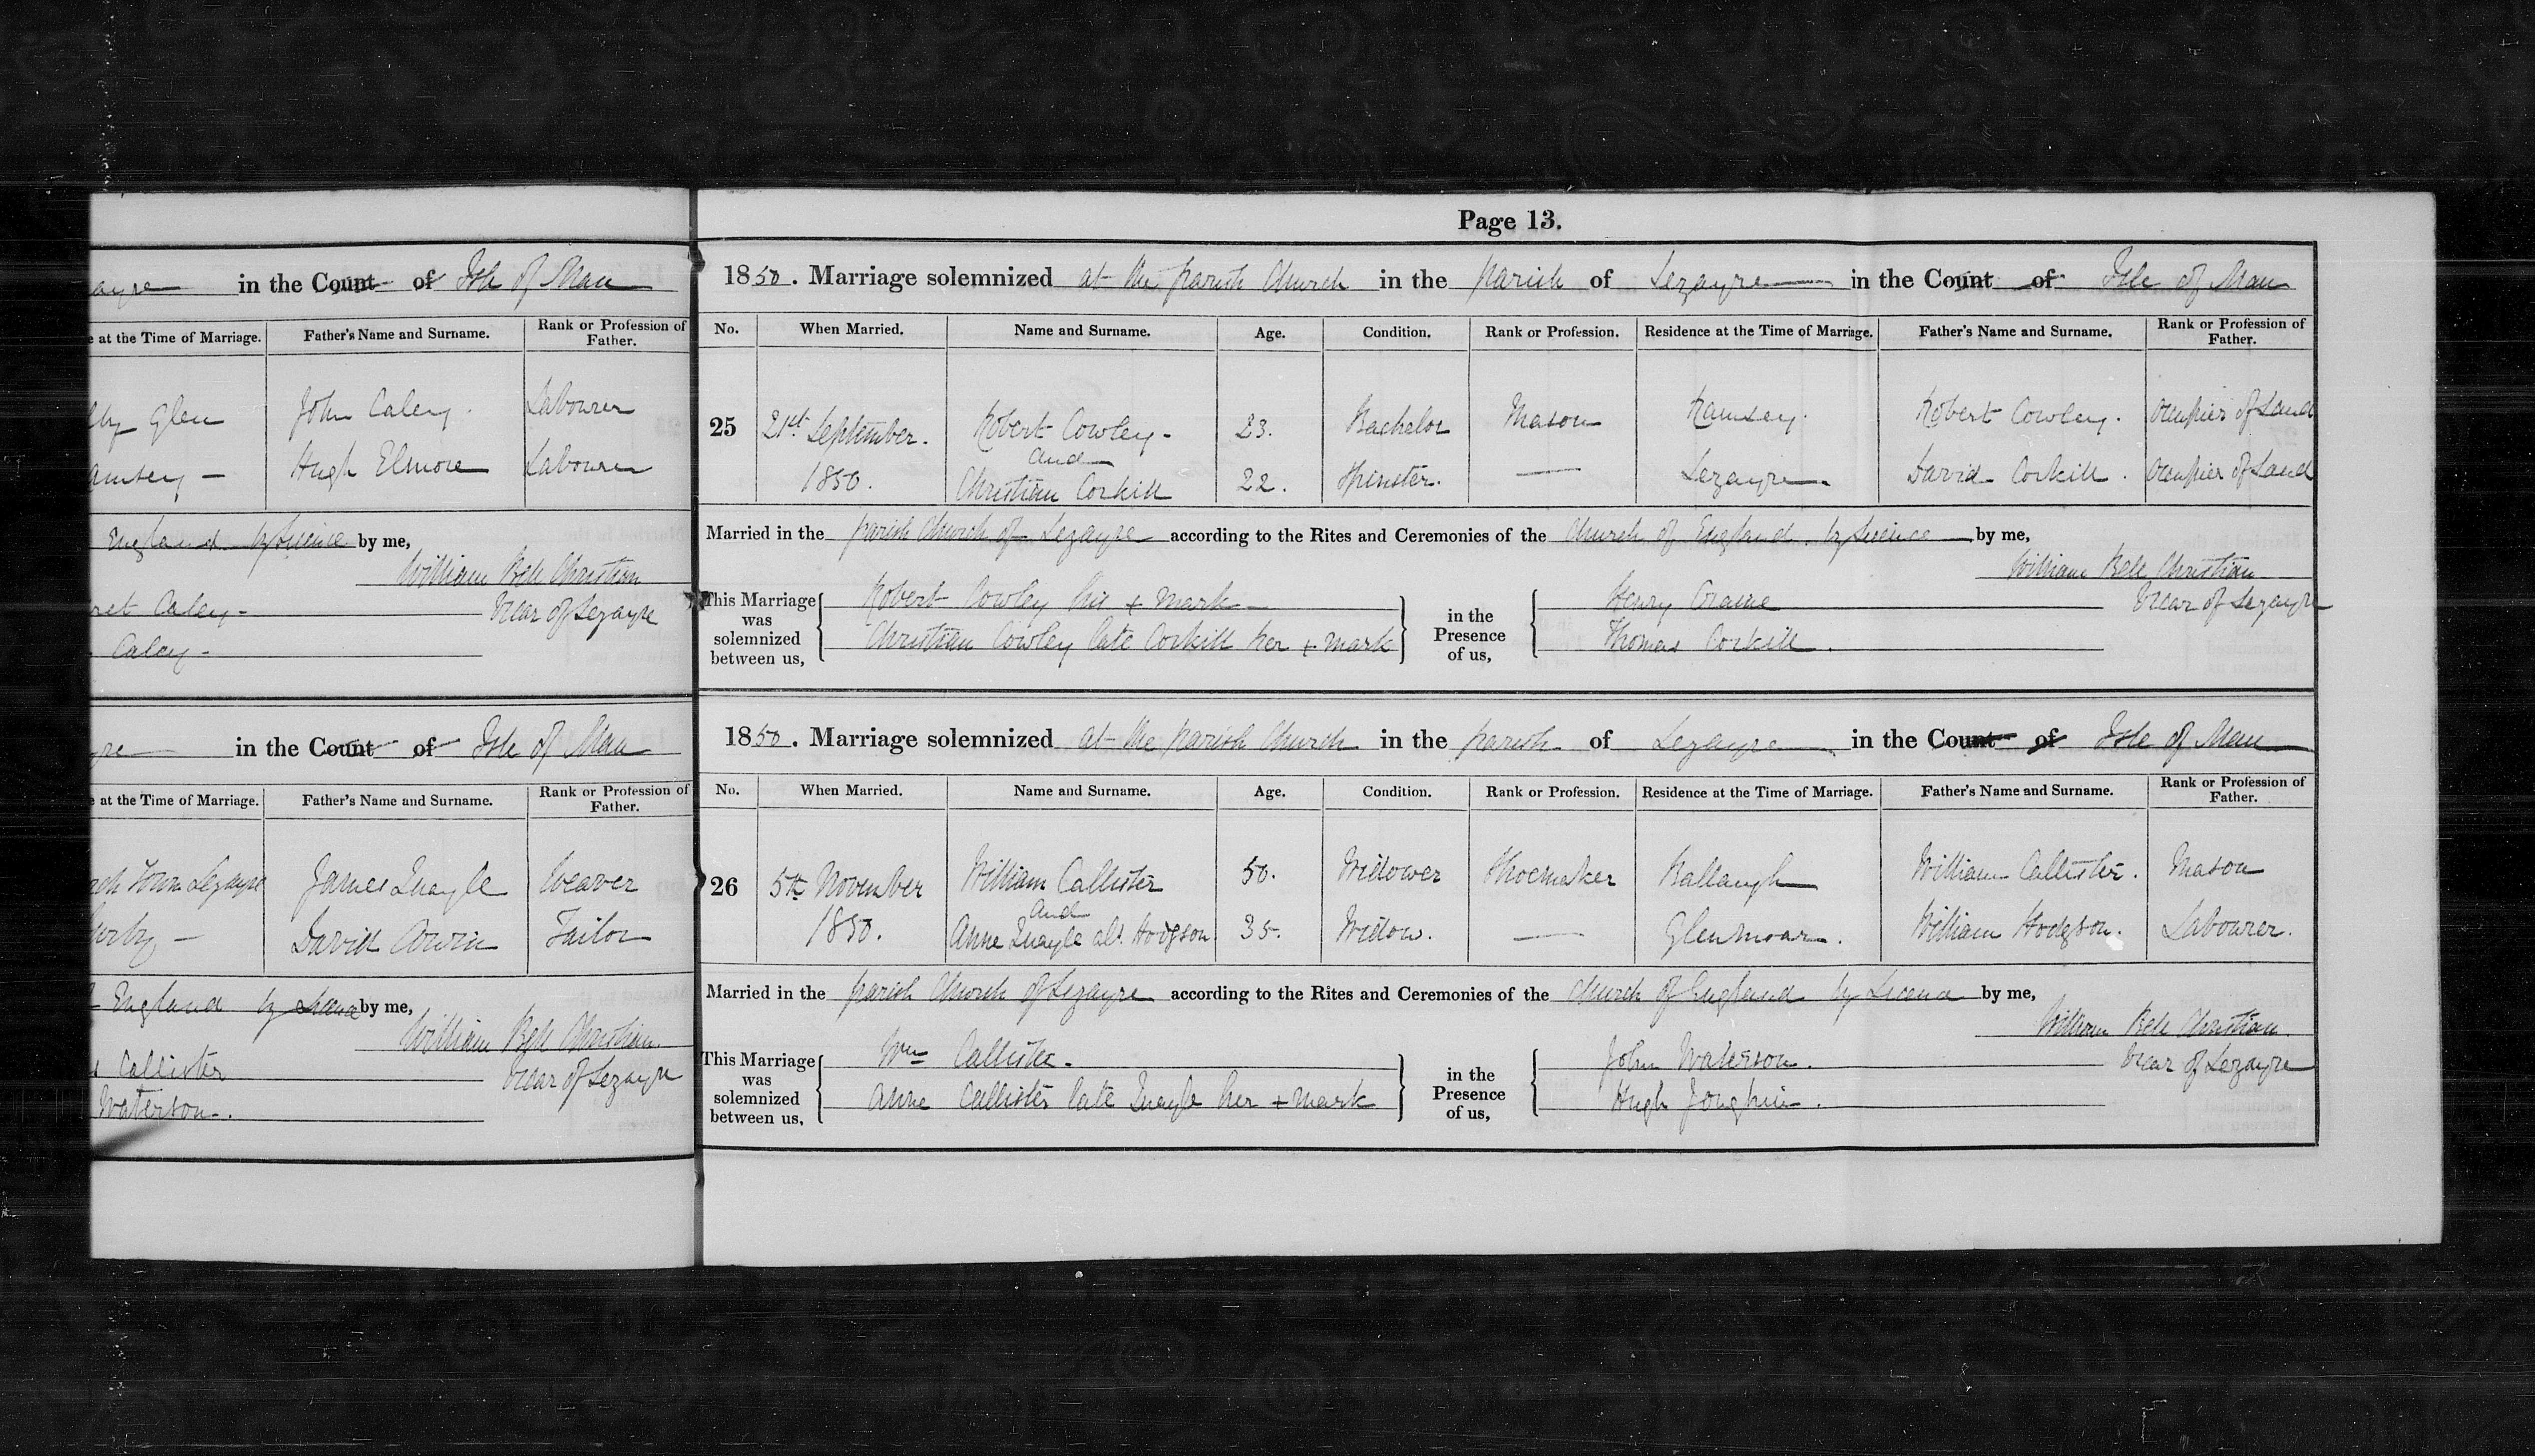 ayre in the Count of Isle of Man
e at the Time of Marriage. Father's Name and Surname. Rank or Profession of Father.
Glen John Caley. Labourer
amsey - Hugh Elmore Labourer
England by licence by me,
William Bell Christian
ret Caley - Vicar of Lezayre
Caley -
yre in the Count of Isle of Man
e at the Time of Marriage. Father's Name and Surname. Rank or Profession of Father.
Town Lezayre James Quayle Weaver
- David Corwin Tailor
England by licence by me,
William Bell Christian
Callister Vicar of Lezayre
Waterson.
Page 13.
1850. Marriage solemnized at the parish Church in the parish of Lezayre in the Count of Isle of Man
No. When Married. Name and Surname. Age. Condition. Rank or Profession. Residence at the Time of Marriage. Father's Name and Surname. Rank or Profession of Father.
25 21st September. Robert Cowley - 23. Bachelor Mason Ramsey. Robert Cowley. Occupier of Land
and
1850. Christian Corkill 22. Spinster. — Lezayre. David Corkill. Occupier of Land
Married in the parish Church of Lezayre according to the Rites and Ceremonies of the Church of England by licence by me,
William Bell Christian
Vicar of Lezayre
This Marriage was solemnized between us, Robert Cowley his + mark
Christian Cowley late Corkill her + mark
in the Presence of us, Henry Craine
Thomas Corkill.
1850. Marriage solemnized at the parish Church in the parish of Lezayre in the Count of Isle of Man
No. When Married. Name and Surname. Age. Condition. Rank or Profession. Residence at the Time of Marriage. Father's Name and Surname. Rank or Profession of Father.
26 5th November William Callister 50. Widower Shoemaker Ballaugh William Callister. Mason
and
1850. Anne Quayle als. Hodgson. 35. Widow. — Glenmoar. William Hodgson. Labourer.
Married in the parish Church of Lezayre according to the Rites and Ceremonies of the Church of England by licence by me,
William Bell Christian.
Vicar of Lezayre
This Marriage was solemnized between us, Wm Callister.
Anne Callister late Quayle her + mark
in the Presence of us, John Waterson.
Hugh Joughin.